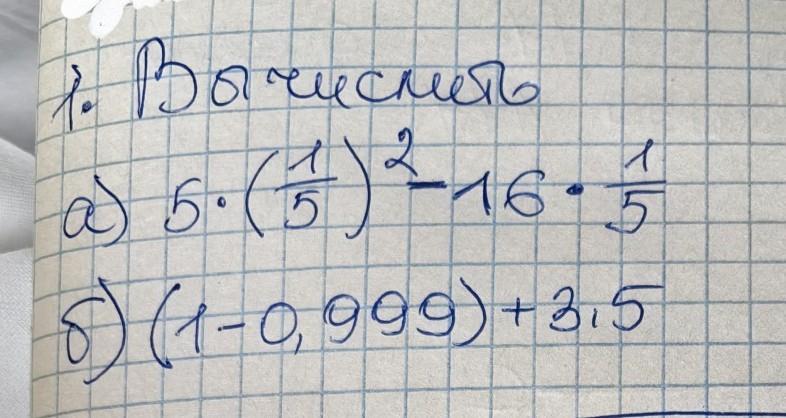 1. Вычислить
а) 5·(1/5)² - 16·1/5
б) (1-0,999)+3,5